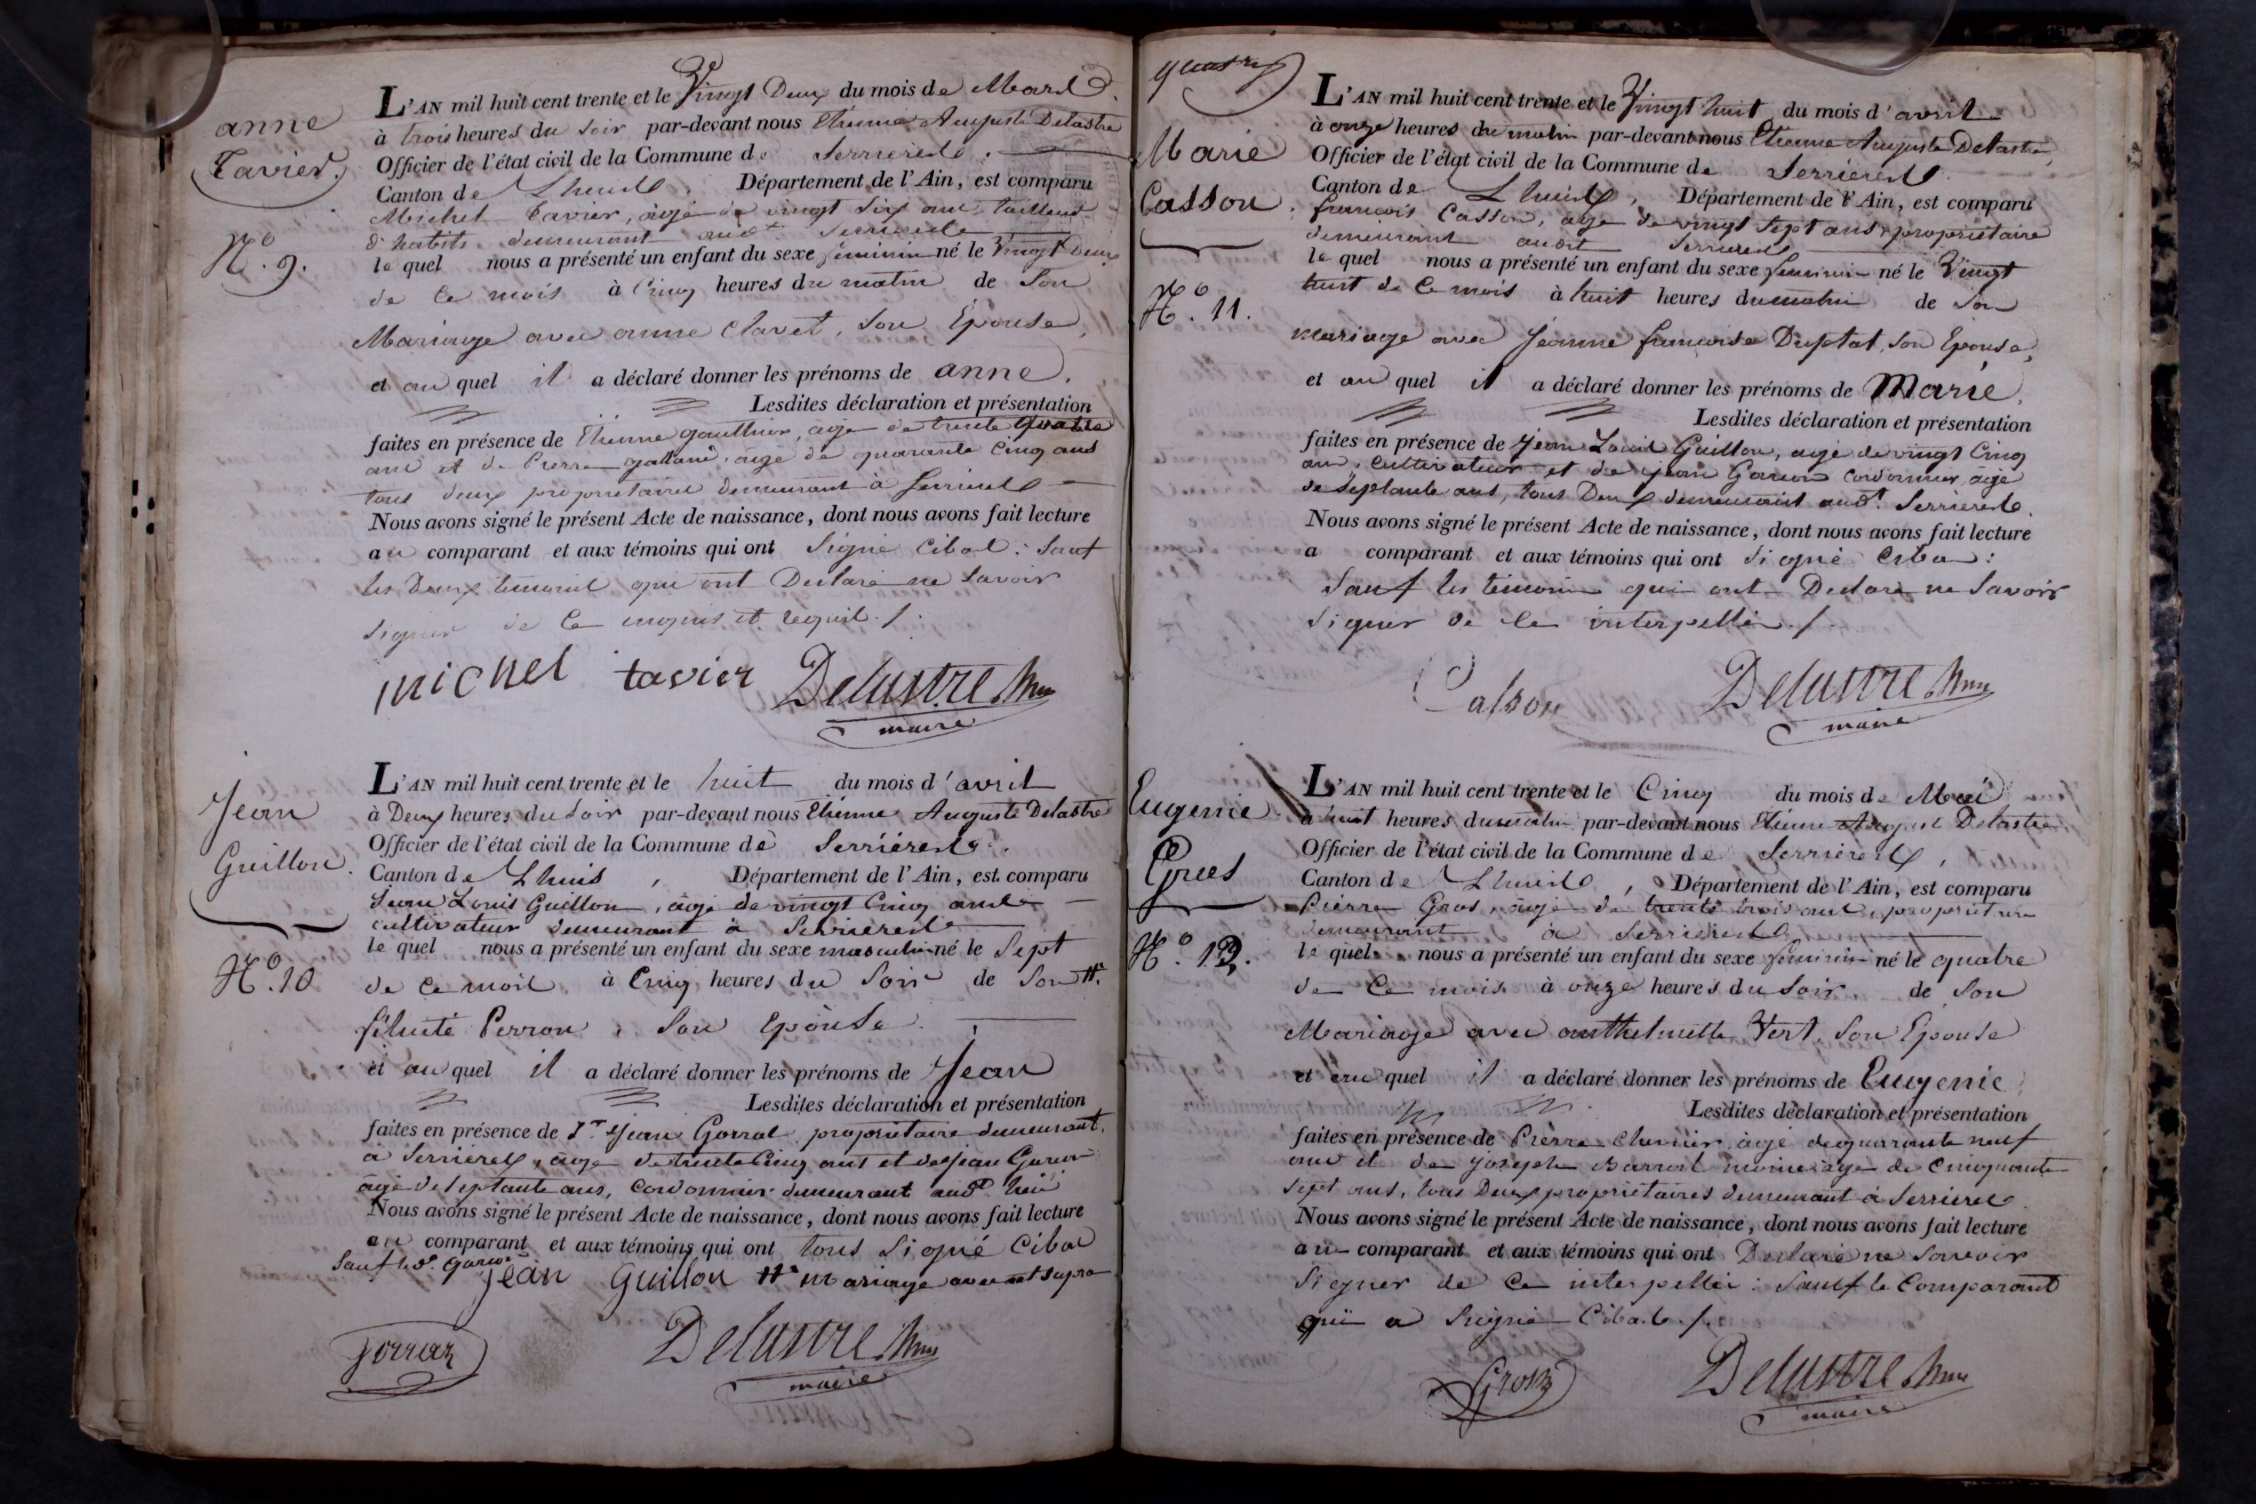 anne
Tavier.
N.º 9.
L'AN mil huit cent trente et le Vingt Deux du mois de Mars
à trois heures du soir par-devant nous Etienne Auguste Delastre
Officier de l'état civil de la Commune de Serrieres.
Canton de Lhuis, Département de l'Ain, est comparu
Michel Tavier, âgé de vingt six ans, tailleur
d'habits demeurant aud.t Serrieres
le quel nous a présenté un enfant du sexe féminin né le Vingt Deux
de ce mois à Cinq heures du matin de Son
Mariage avec anne Clavet, son Epouse,
et au quel il a déclaré donner les prénoms de anne.
Lesdites déclaration et présentation
faites en présence de Etienne gauthier, age de trente quatre
ans et de Pierre galland, âgé de quarante Cinq ans
tous deux propriétaires demeurant à Serrieres
Nous avons signé le présent Acte de naissance, dont nous avons fait lecture
au comparant et aux témoins qui ont Signé Cibas: Sauf
les Deux temoins qui ont Declaré ne Savoir
Signer de ce enquis et requis./.
michel tavier Delastre
maire
Jean
Guillon.
N.º 10
L'AN mil huit cent trente et le huit du mois d'avril
à Deux heures du Soir par-devant nous Etienne Auguste Delastre
Officier de l'état civil de la Commune de Serrieres.
Canton de Lhuis, Département de l'Ain, est comparu
Jean Louis Guillon, âgé de vingt Cinq ans
cultivateur demeurant à Serrieres
le quel nous a présenté un enfant du sexe masculin né le Sept
de ce mois à Cinq heures du Soir de Son #.
félicité Perron, Son Epouse.
et au quel il a déclaré donner les prénoms de Jean
Lesdites déclaration et présentation
faites en présence de S.r Jean Gorraz propriétaire demeurant
à Serrieres, age de trente Cinq ans et de Jean Garin
âgé de Septante ans, cordonnier demeurant aud.t lieu
Nous avons signé le présent Acte de naissance, dont nous avons fait lecture
au comparant et aux témoins qui ont tous Signé Cibas
Sauf led. Garin
jean Guillon #. mariage avec
Gorraz Delastre
maire
quatre
Marie
Casson.
N.º 11.
L'AN mil huit cent trente et le Vingt huit du mois d'avril
à onze heures du matin par-devant nous Etienne Auguste Delastre,
Officier de l'état civil de la Commune de Serrieres
Canton de Lhuis, Département de l'Ain, est comparu
françois Casson, age de vingt Sept ans, propriétaire
demeurant audit Serrieres
le quel nous a présenté un enfant du sexe feminin né le Vingt
huit de ce mois à huit heures du matin de Son
mariage avec Jeanne françoise Duplat, son Epouse,
et au quel il a déclaré donner les prénoms de Marie,
Lesdites déclaration et présentation
faites en présence de Jean Louis Guillon, agé de vingt Cinq
ans, Cultivateur et de Jean Garin cordonnier, âgé
de Septante ans, tous Deux demeurant aud.t Serrieres.
Nous avons signé le présent Acte de naissance, dont nous avons fait lecture
a comparant et aux témoins qui ont Signé Ciba:
Sauf les témoins qui ont Declaré ne Savoir
Signer de ce interpellés./.
Casson Delastre
maire
Eugenie
Gros
N.º 12.
L'AN mil huit cent trente et le Cinq du mois de Mai
à huit heures du matin par-devant nous Etienne August Delastre
Officier de l'état civil de la Commune de Serrieres,
Canton de Lhuis, Département de l'Ain, est comparu
Pierre Gros, âgé de trente trois ans, propriétaire
demeurant à Serrieres
le quel nous a présenté un enfant du sexe féminin né le quatre
de Ce mois à onze heures du Soir de Son
Mariage avec anthelmette Vert, Son Epouse
et au quel il a déclaré donner les prénoms de Eugenie
Lesdites déclaration et présentation
faites en présence de Pierre âgé de quarante neuf
ans et de Joseph age de Cinquante
Sept ans, tous Deux propriétaires demeurant à Serrieres
Nous avons signé le présent Acte de naissance, dont nous avons fait lecture
au comparant et aux témoins qui ont Declaré ne Savoir
Signer de Ce interpellés: Sauf le Comparant
qui a Signé Cibas./.
Gros Delastre
maire